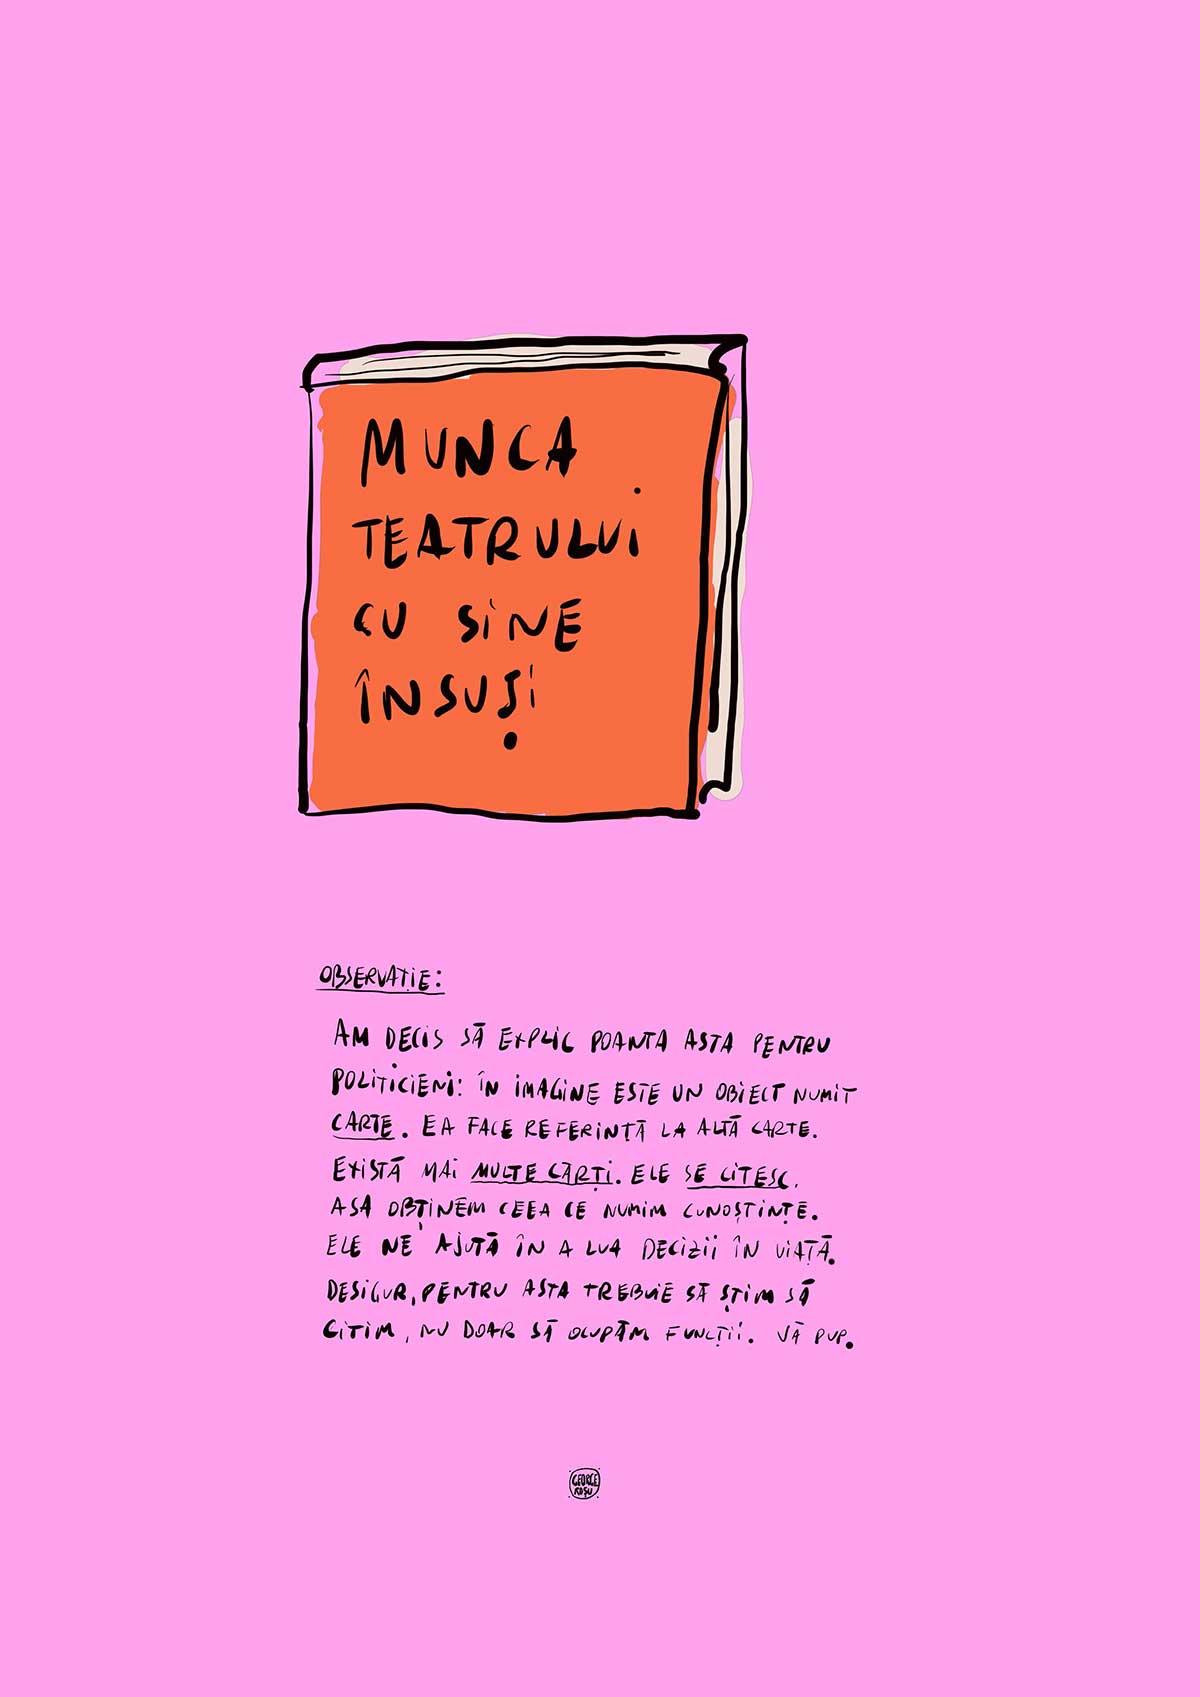 MUNCA
TEATRULUI
CU SINE
ÎNSUȘI
OBSERVAȚIE:
AM DECIS SĂ EXPLIC POANTA ASTA PENTRU
POLITICIENI: ÎN IMAGINE ESTE UN OBIECT NUMIT
CARTE. EA FACE REFERINȚĂ LA ALTĂ CARTE.
EXISTĂ MAI MULTE CĂRȚI. ELE SE CITESC.
AȘA OBȚINEM CEEA CE NUMIM CUNOȘTINȚE.
ELE NE AJUTĂ ÎN A LUA DECIZII ÎN VIAȚĂ.
DESIGUR, PENTRU ASTA TREBUIE SĂ ȘTIM SĂ
CITIM, NU DOAR SĂ OCUPĂM FUNCȚII. VĂ PUP.
GEORGE
ROȘU